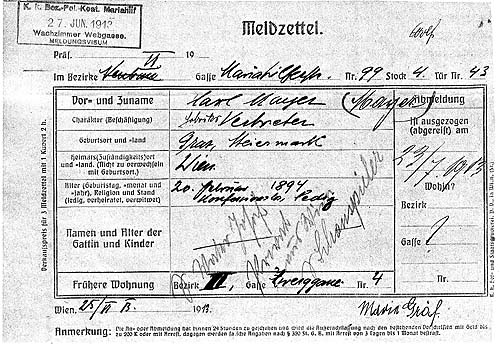 K. k. Bez.-Pol.-Komt. Mariahilf
27. JUN. 1913
Wachzimmer Webgasse.
MELDUNGSVISUM
Meldzettel.
Präs. VI 19
Im Bezirke Neubau Gasse Mariahilferstr. Nr. 99 Stock 4. Tür Nr. 43
Vor- und Zuname Karl Mayer (Mayer)
Abmeldung
Charakter (Beschäftigung) Vertreter
Ist ausgezogen
(abgereist) am
Geburtsort und -land Graz, Steiermark
23/7. 1913
Heimats(Zuständigkeits)ort
und -land. (Nicht zu verwechseln
mit Geburtsort.) Wien
Wohin?
Alter (Geburtstag, -monat und
-jahr), Religion und Stand
(ledig, verheiratet, verwitwet) 20. Februar 1894
Konfessionslos, ledig
Bezirk
Namen und Alter der
Gattin und Kinder
Schauspieler
Gasse ?
Frühere Wohnung Bezirk III, Gasse Nr. 4
Wien, 25/VI 13. 191
Marie Gräf.
Verkaufspreis für 3 Meldzettel mit 1 Kuvert 2 h.
Anmerkung: Die An- oder Abmeldung hat binnen 24 Stunden zu geschehen und wird die Außerachtlassung nach den bestehenden Vorschriften mit Geld bis
zu 200 K oder mit Arrest, dagegen werden falsche Angaben nach § 320 St. G. B. mit Arrest von 3 Tagen bis 1 Monat bestraft.